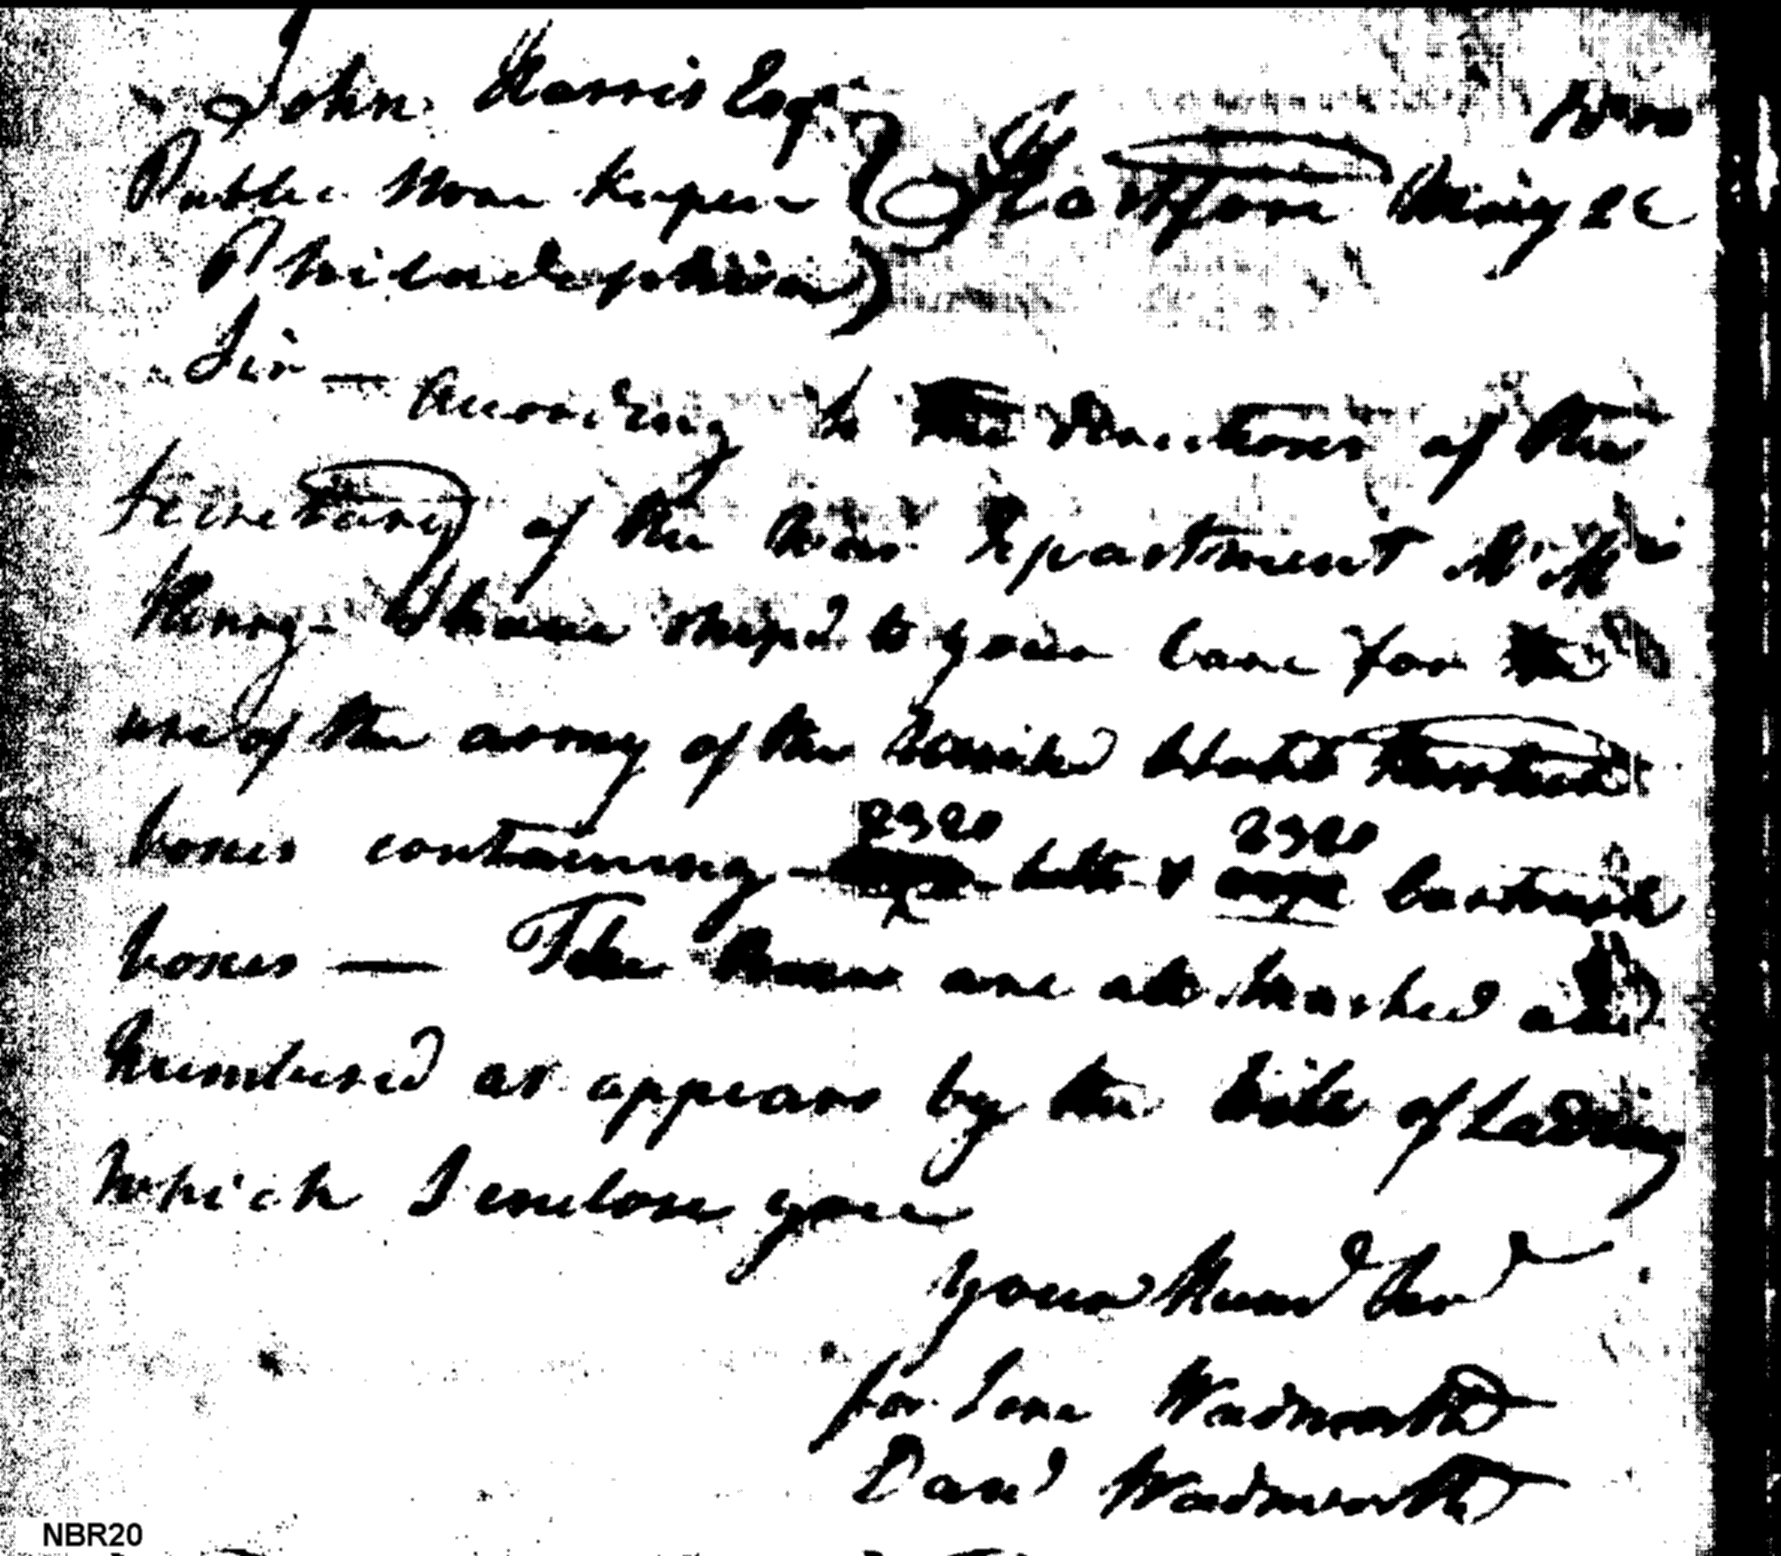 John Harris Esqr
Public Store Keeper Hartford May 26 1800
Philadelphia
Sir — According to the directions of the
Secretary of the War Department Mr Mc
Henry - I have ship'd to your Care for the
use of the army of the United States
boxes containing 2320 belts & 2320 Cartouch
boxes — The Boxes are all Marked and
Numbered as appears by the Bill of Lading
which I enclose you
your Hume Ser
for Jere Wadsworth
Danl Wadsworth
NBR20